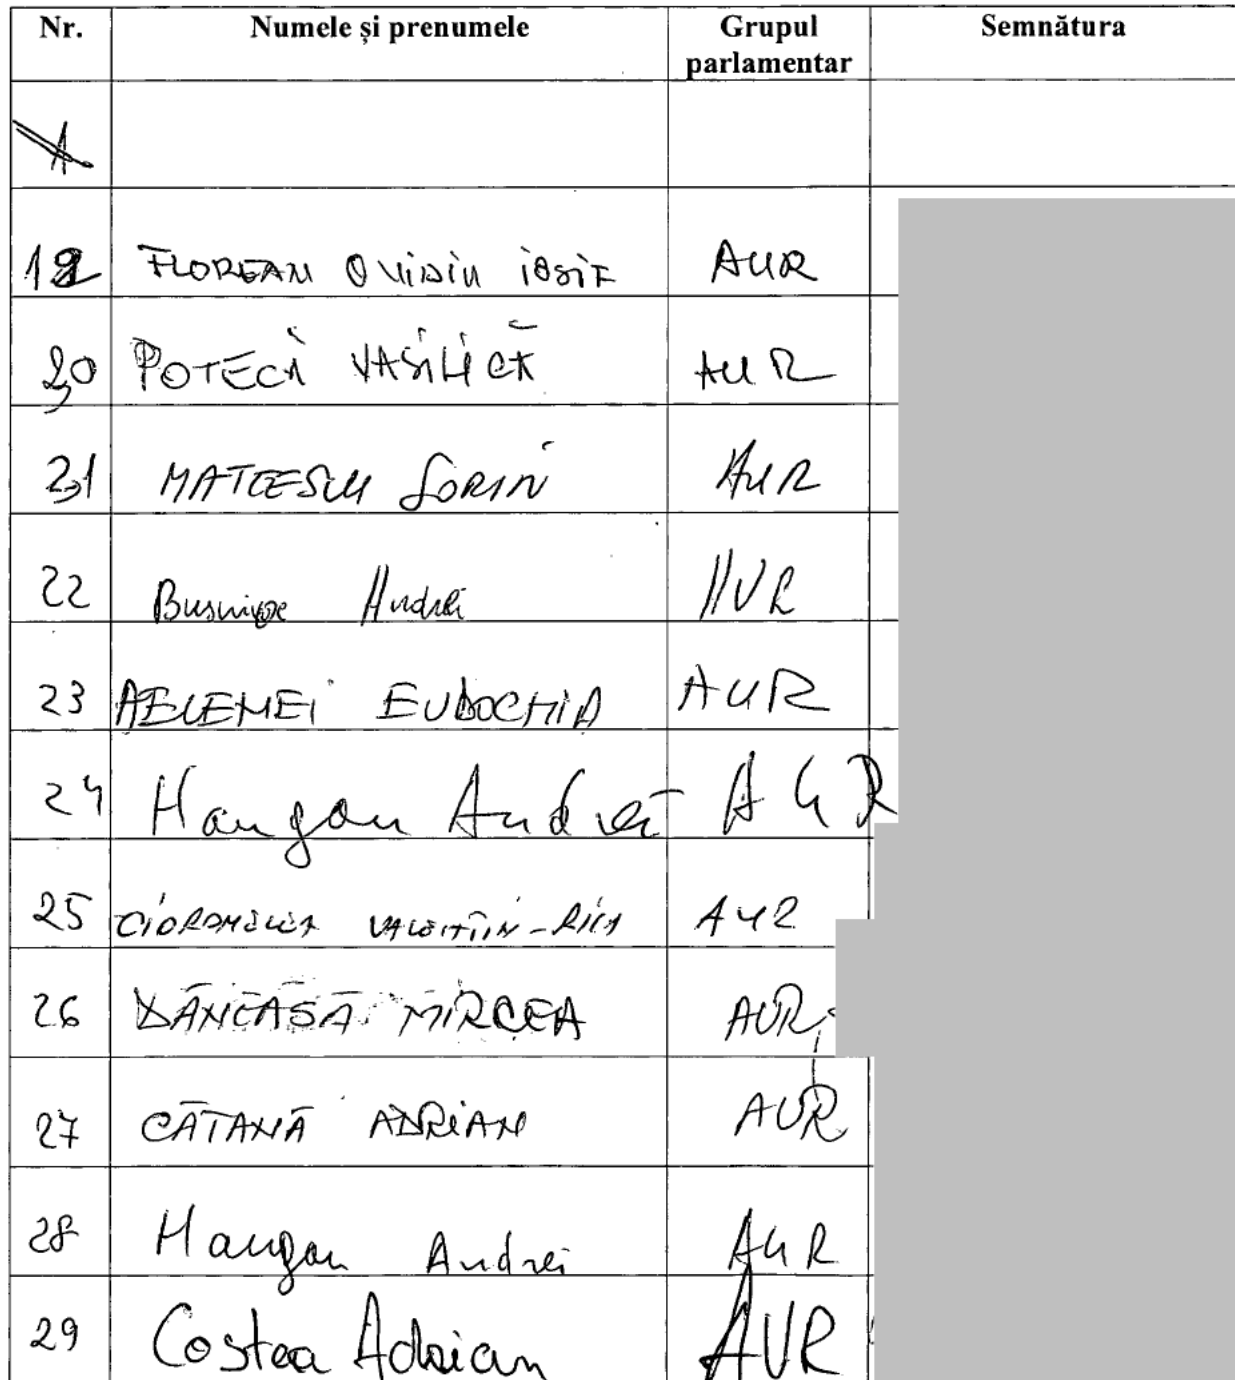 Nr. Numele și prenumele Grupul parlamentar Semnătura
19 FLOREAN OVIDIU IOSIF AUR
20 POTECĂ VASILICĂ AUR
21 MATEESCU SORIN AUR
22 Andrei AUR
23 AELENEI EUDOCHIA AUR
24 Hangan Andrei AUR
25 VALENTIN-RICA AUR
26 DĂNEASĂ MIRCEA AUR
27 CĂTANĂ ADRIAN AUR
28 Hangan Andrei AUR
29 Costea Adrian AUR